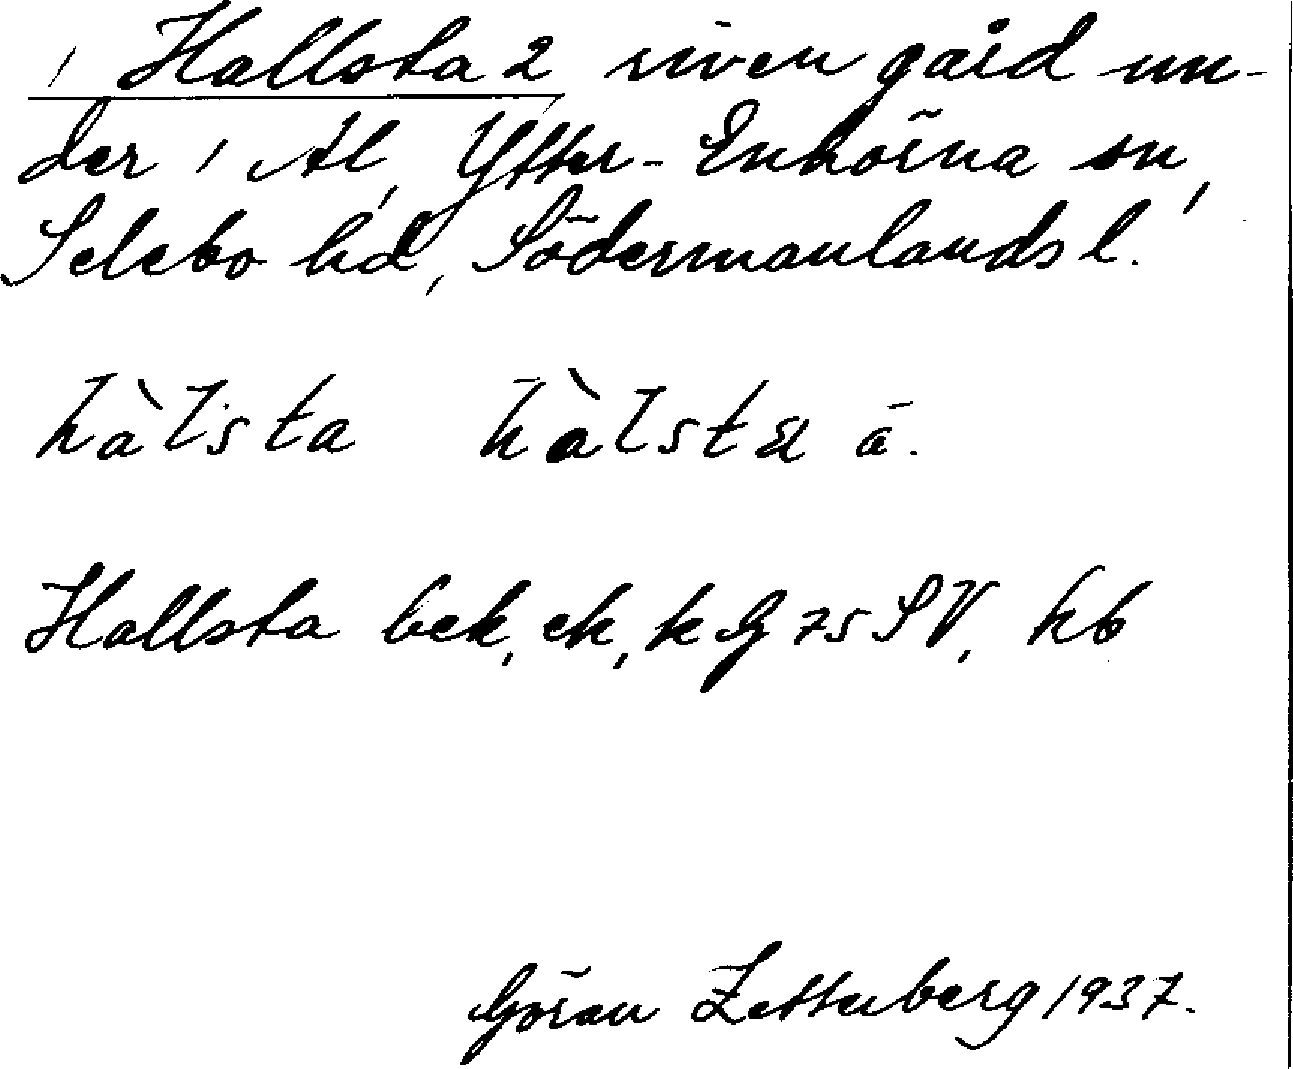 1 Hallsta 2 riven gård un-
der 1 Ål, Ytter-Enhörna sn,
Selebo hd, Södermanlands l.
hàlsta hàlsta ā.
Hallsta bek, ek, k G 75 SV, hb
Göran Zetterberg 1937.